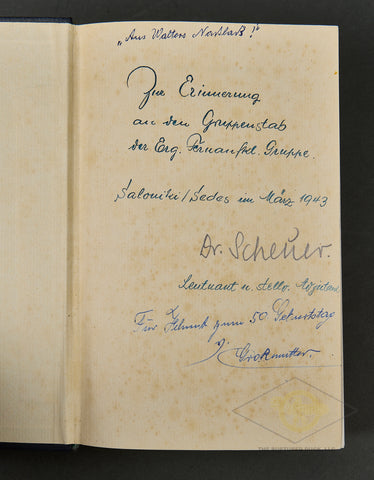 „Aus Walters Nachlaß!"
Zur Erinnerung
an den Gruppenstab
der Erg. Fernaufkl. Gruppe.
Saloniki/Sedes im März 1943
Dr. Scheuer.
Leutnant u. stellv. Adjutant
Für Helmut zum 50 Geburtstage
v. Großmutter.
THE RUPTURED DUCK, LLC